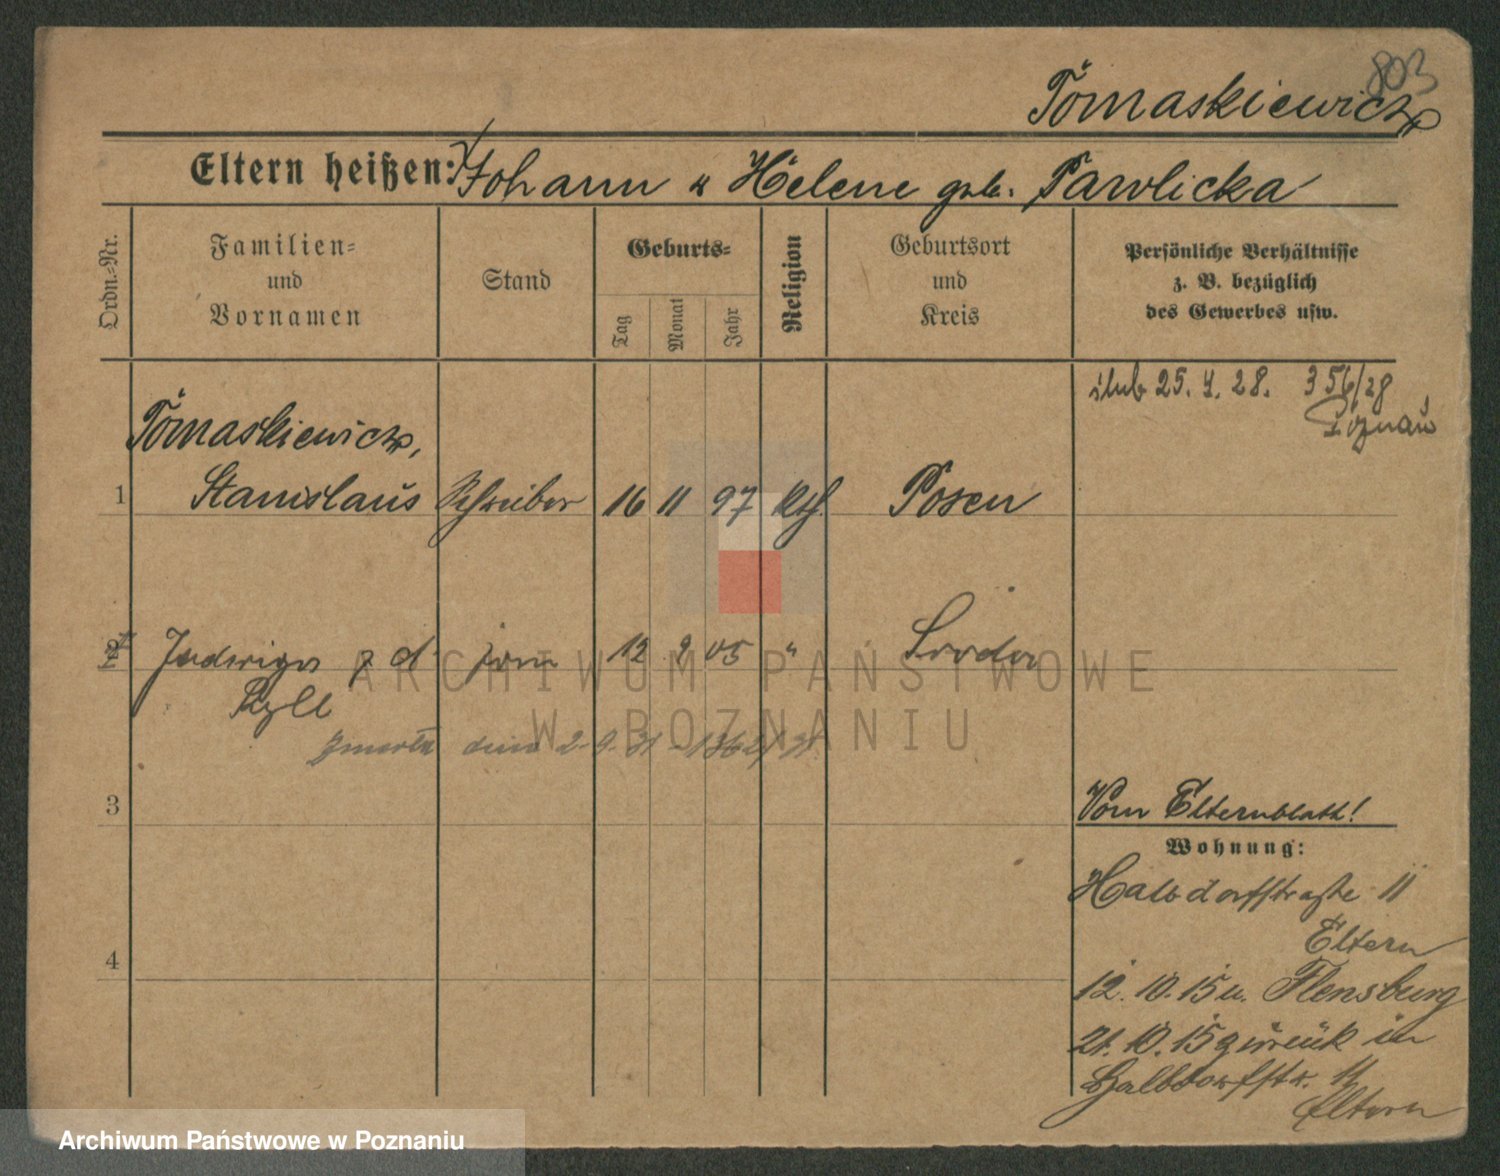 803
Tomaskiewicz
Eltern heißen: Johann u Helene geb. Pawlicka
Ordn.=Nr.
Familien=
und
Vornamen
Stand
Geburts=
Tag
Monat
Jahr
Religion
Geburtsort
und
Kreis
Persönliche Verhältnisse
z. B. bezüglich
des Gewerbes usw.
ślub 25. 4. 28. 356/28
Poznań
Tomaskiewicz,
1 Stanislaus Schreiber 16 11 97 Kth. Posen
2 Jadwiga z d. żona 12 9 05 " Środa
Ryll
zmarła dnia 2.9.31 - 1362/31
3
Vom Elternblatt!
Wohnung:
Halbdorfstraße 11
Eltern
4
12. 10. 15 n. Flensburg
21. 10. 15 zurück in
Halbdorfstr. 11
Eltern
ARCHIWUM PAŃSTWOWE
W POZNANIU
Archiwum Państwowe w Poznaniu